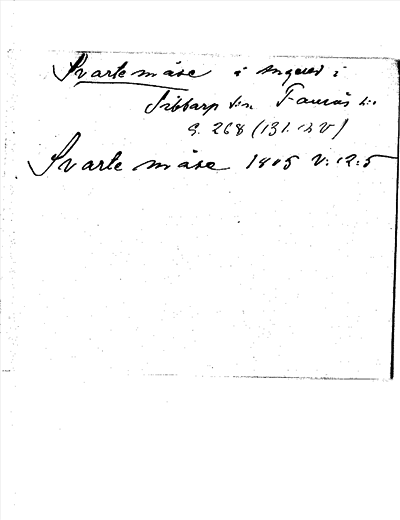 Svartemåse i
Sibbarp sn Faurås hd
s. 268 (131.
Svarte måse 1805 V:12:5